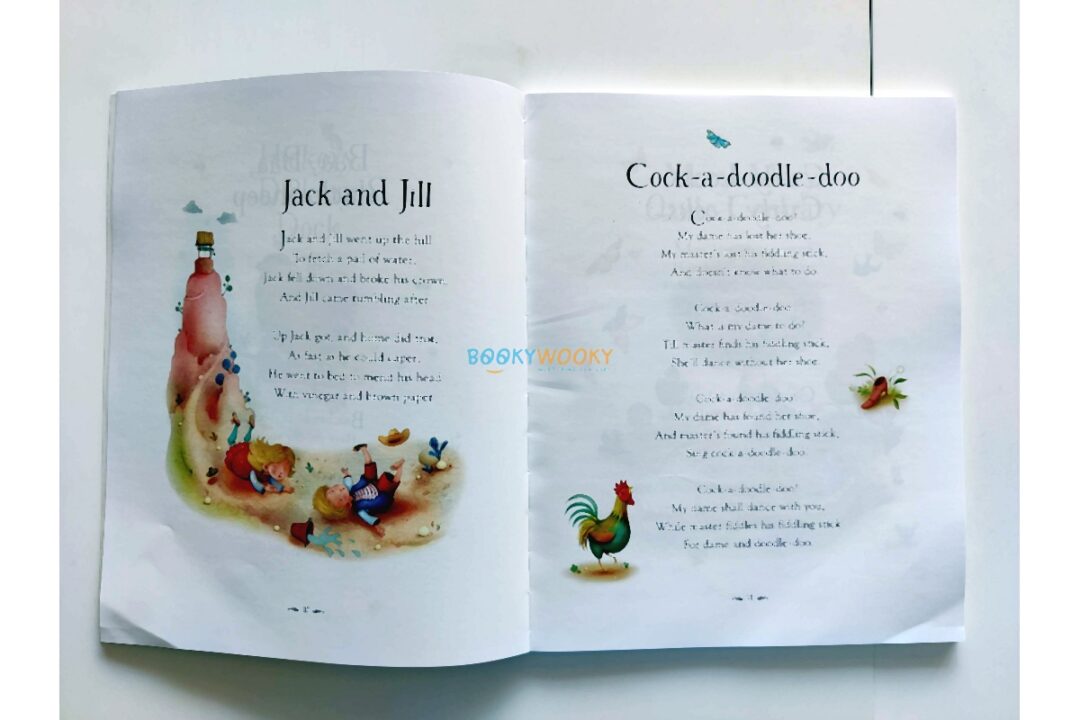 Jack and Jill
Jack and Jill went up the hill
To fetch a pail of water,
Jack fell down and broke his crown,
And Jill came tumbling after.
Up Jack got, and home did trot,
As fast as he could caper,
He went to bed to mend his head
With vinegar and brown paper.
BOOKYWOOKY
Cock-a-doodle-doo
Cock-a-doodle-doo!
My dame has lost her shoe,
My master's lost his fiddling stick,
And doesn't know what to do.
Cock-a-doodle-doo
What is my dame to do?
Till master finds his fiddling stick,
She'll dance without her shoe.
Cock-a-doodle-doo!
My dame has found her shoe,
And master's found his fiddling stick,
Sing cock-a-doodle-doo.
Cock-a-doodle-doo!
My dame shall dance with you,
While master fiddles his fiddling stick
For dame and doodle-doo.